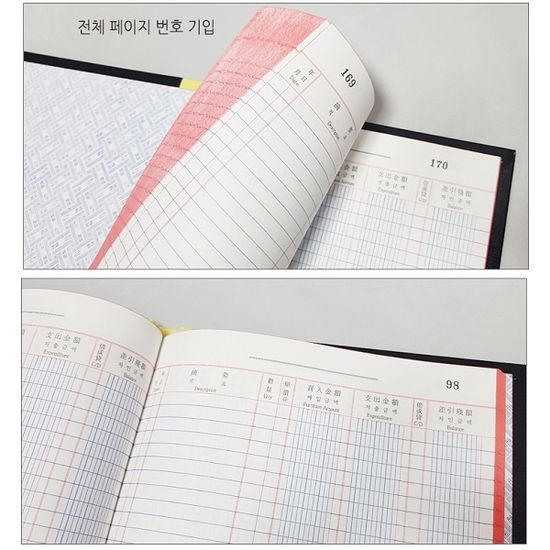 전체 페이지 번호 기입
169
年
月 日
Date
摘
적
要
요
Description
170
支出金額
지출금액
Expenditure
借或貸
C/D
差引殘額
차인잔액
Balance
支出金額
지출금액
Expenditure
借或貸
C/D
差引殘額
차인잔액
Balance
98
摘 要
적 요
Description
數量
Q'ty
單價
買入金額
매입금액
Purchase Amount
支出金額
지출금액
Expenditure
借或貸
C/D
差引殘額
차인잔액
Balance